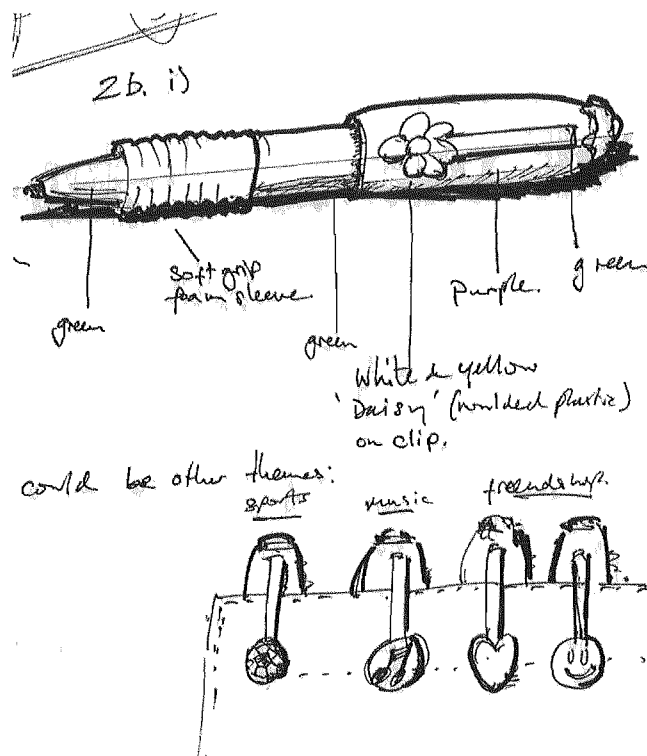 2b. i)
green
soft grip
foam sleeve.
green
White & yellow
'Daisy' (moulded plastic)
on clip.
purple.
green
could be other themes:
sports
music
friendship.